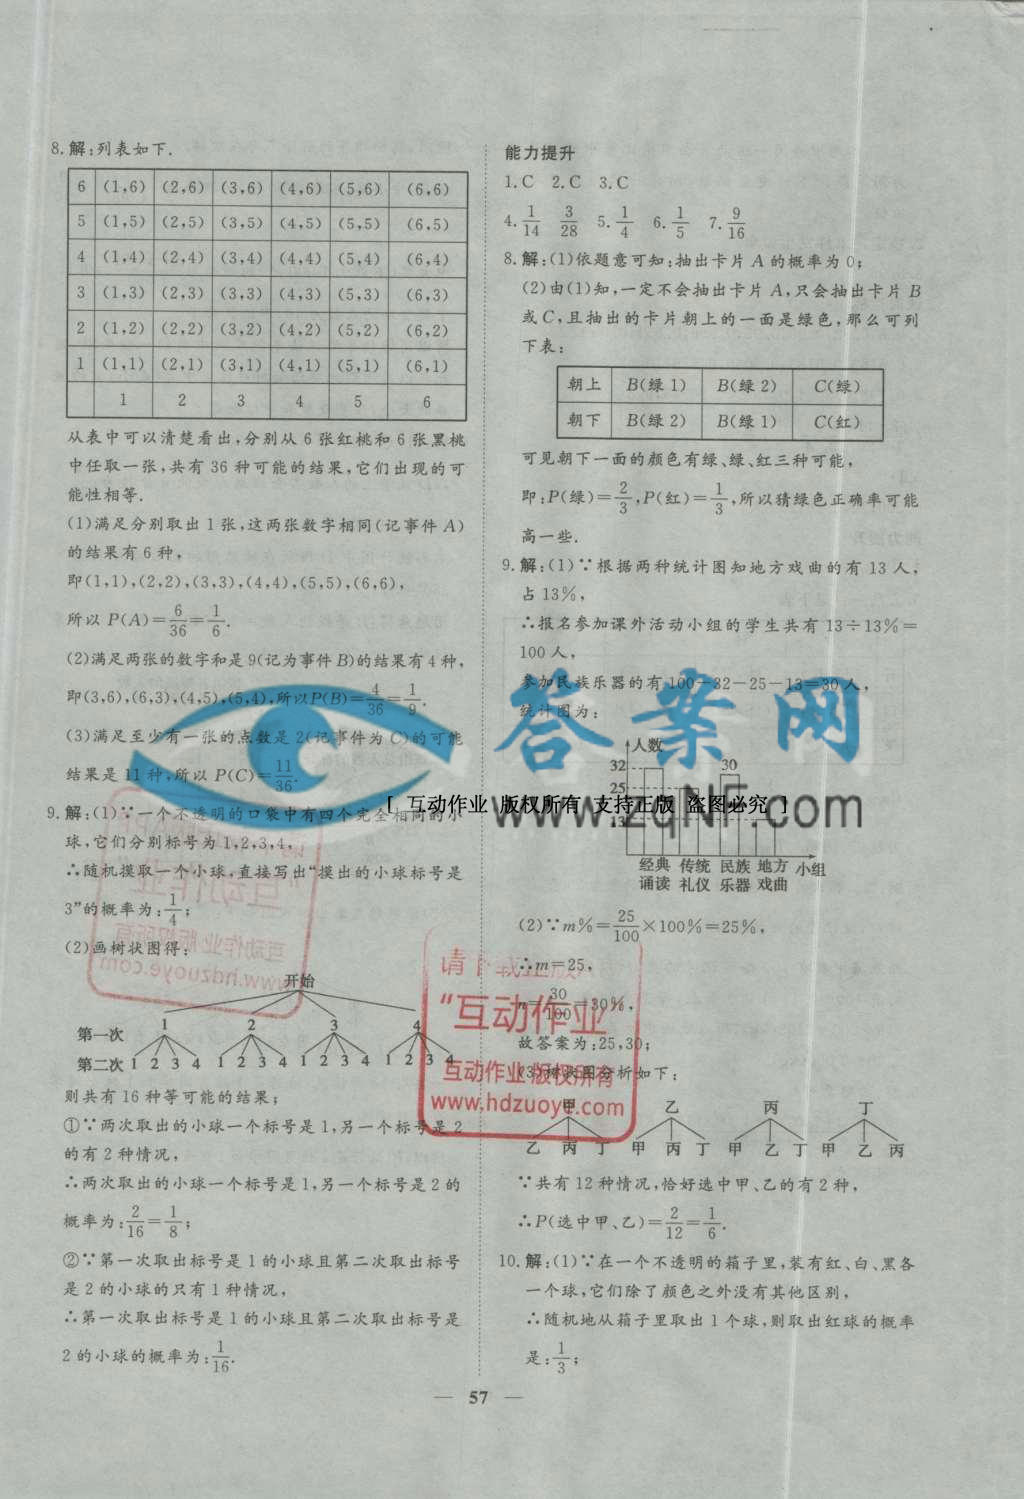 8.解:列表如下.
6 (1,6) (2,6) (3,6) (4,6) (5,6) (6,6)
5 (1,5) (2,5) (3,5) (4,5) (5,5) (6,5)
4 (1,4) (2,4) (3,4) (4,4) (5,4) (6,4)
3 (1,3) (2,3) (3,3) (4,3) (5,3) (6,3)
2 (1,2) (2,2) (3,2) (4,2) (5,2) (6,2)
1 (1,1) (2,1) (3,1) (4,1) (5,1) (6,1)
1 2 3 4 5 6
从表中可以清楚看出,分别从6张红桃和6张黑桃
中任取一张,共有36种可能的结果,它们出现的可
能性相等.
(1)满足分别取出1张,这两张数字相同(记事件A)
的结果有6种,
即(1,1),(2,2),(3,3),(4,4),(5,5),(6,6),
所以P(A)=6/36=1/6.
(2)满足两张的数字和是9(记为事件B)的结果有4种,
即(3,6),(6,3),(4,5),(5,4),所以P(B)=4/36=1/9.
(3)满足至少有一张的点数是2(记事件为C)的可能
结果是11种,所以P(C)=11/36.
9.解:(1)∵一个不透明的口袋中有四个完全相同的小
球,它们分别标号为1,2,3,4,
∴随机摸取一个小球,直接写出“摸出的小球标号是
3”的概率为:1/4;
(2)画树状图得:
开始
第一次 1 2 3 4
第二次 1 2 3 4 1 2 3 4 1 2 3 4 1 2 3 4
则共有16种等可能的结果;
①∵两次取出的小球一个标号是1,另一个标号是2
的有2种情况,
∴两次取出的小球一个标号是1,另一个标号是2的
概率为:2/16=1/8;
②∵第一次取出标号是1的小球且第二次取出标号
是2的小球的只有1种情况,
∴第一次取出标号是1的小球且第二次取出标号是
2的小球的概率为:1/16.
能力提升
1.C 2.C 3.C
4.1/14 3/28 5.1/4 6.1/5 7.9/16
8.解:(1)依题意可知:抽出卡片A的概率为0;
(2)由(1)知,一定不会抽出卡片A,只会抽出卡片B
或C,且抽出的卡片朝上的一面是绿色,那么可列
下表:
朝上 B(绿1) B(绿2) C(绿)
朝下 B(绿2) B(绿1) C(红)
可见朝下一面的颜色有绿、绿、红三种可能,
即:P(绿)=2/3,P(红)=1/3,所以猜绿色正确率可能
高一些.
9.解:(1)∵根据两种统计图知地方戏曲的有13人,
占13%,
∴报名参加课外活动小组的学生共有13÷13%=
100人,
参加民族乐器的有100-32-25-13=30人,
统计图为:
人数
32
30
25
13
经典 传统 民族 地方 小组
诵读 礼仪 乐器 戏曲
(2)∵m%=25/100×100%=25%,
∴m=25,
n=30/100=30%,
故答案为:25,30;
(3)树状图分析如下:
甲 乙 丙 丁
乙 丙 丁 甲 丙 丁 甲 乙 丁 甲 乙 丙
∵共有12种情况,恰好选中甲、乙的有2种,
∴P(选中甲、乙)=2/12=1/6.
10.解:(1)∵在一个不透明的箱子里,装有红、白、黑各
一个球,它们除了颜色之外没有其他区别,
∴随机地从箱子里取出1个球,则取出红球的概率
是:1/3;
— 57 —
答案网
www.zqNF.com
[ 互动作业 版权所有 支持正版 盗图必究 ]
“互动作业”
互动作业 版权所有
www.hdzuoye.com
“互动作业
互动作业 版权所有
www.hdzuoye.com